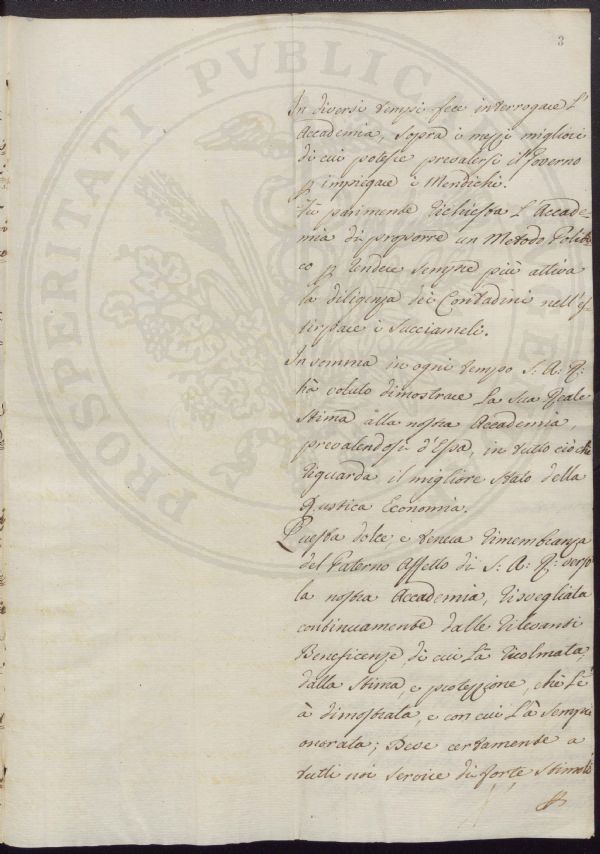 3
In diversi tempi fece interrogare l'
Accademia, sopra i mezzi migliori
di cui potesse prevalersi il Governo
p impiegare i Mendichi.
Fù parimente richiesta l'Accade=
mia di proporre un Metodo Politi
co p rendere sempre più attiva
la diligenza dei Contadini nell'es
tirpare i Succiameli.
In somma in ogni tempo S: A: R:
hà voluto dimostrare la sua Reale
Stima alla nostra Accademia,
prevalendosi d'Essa, in tutto ciò che
riguarda il migliore stato della
Rustica Economia.
Questa dolce, e tenera rimembranza
del Paterno Affetto di S: A: R: verso
la nostra Accademia, risvegliata
continuamente dalle rilevanti
Beneficenze, di cui l'à ricolmata,
dalla Stima, e protezzione, che Le
à dimostrata, e con cui l'à sempre
onorata; Deve certamente a
tutti noi servire di forte stimolo
p
PROSPERITATI PVBLICAE